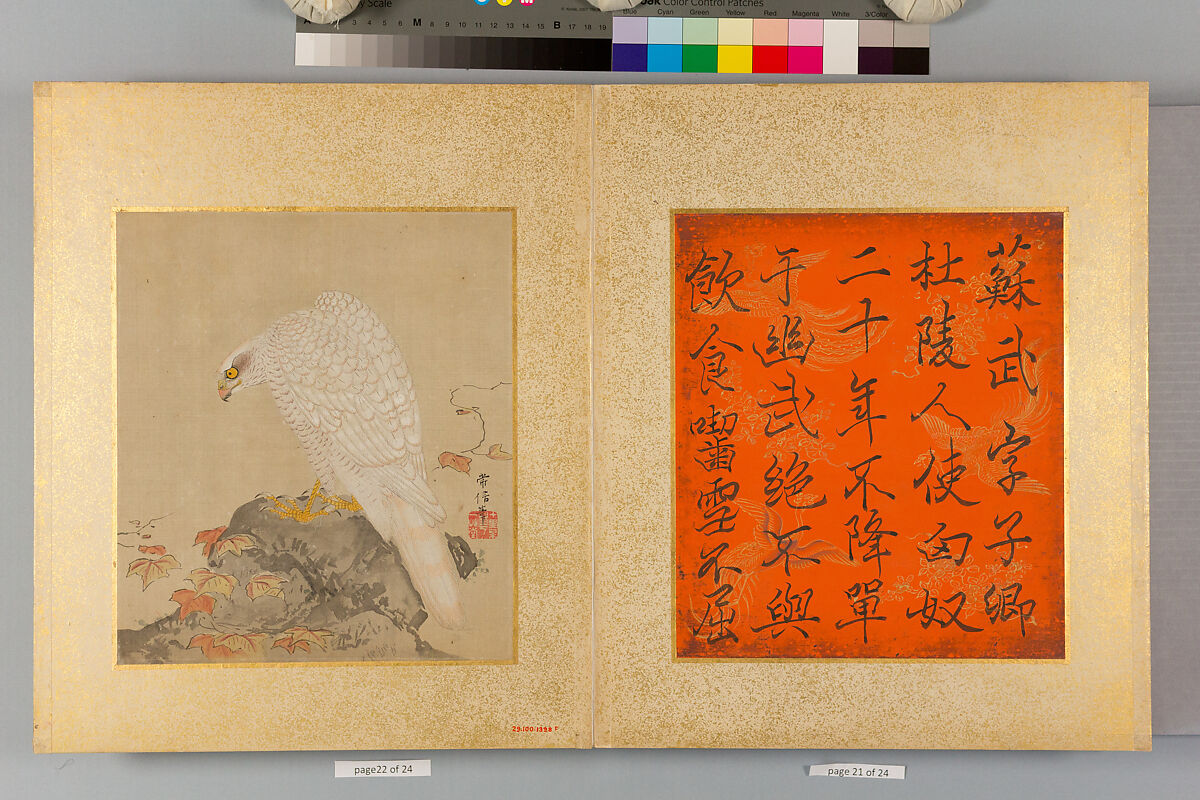 Scale
Color Control Patches
Blue Cyan Green Yellow Red Magenta White 3/Color
A 3 4 5 6 M 8 9 10 11 12 13 14 15 B 17 18 19
蘇武字子卿
杜陵人使匈奴
二十年不降單
于幽武絶不與
飲食嚙雪不屈
常信筆
page 21 of 24
page22 of 24